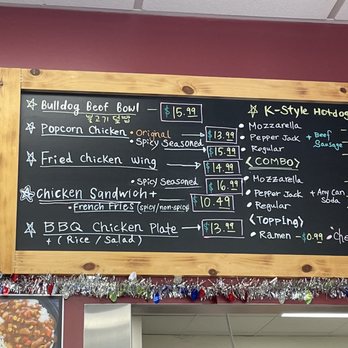 Bulldog Beef Bowl — $15.99
불고기 덮밥
Popcorn Chicken • Original → $13.99
• Spicy Seasoned $15.99
Fried chicken wing → $14.99
• Spicy Seasoned $16.99
Chicken Sandwich +
• French Fries (spicy/non-spicy) $10.49
BBQ Chicken Plate → $13.99
+ (Rice / Salad)
K-Style Hotdog
• Mozzarella
• Pepper Jack + Beef
• Regular Sausage
(COMBO)
• Mozzarella
• Pepper Jack + Any Can
• Regular Soda
(Topping)
• Ramen — $0.99 • Che